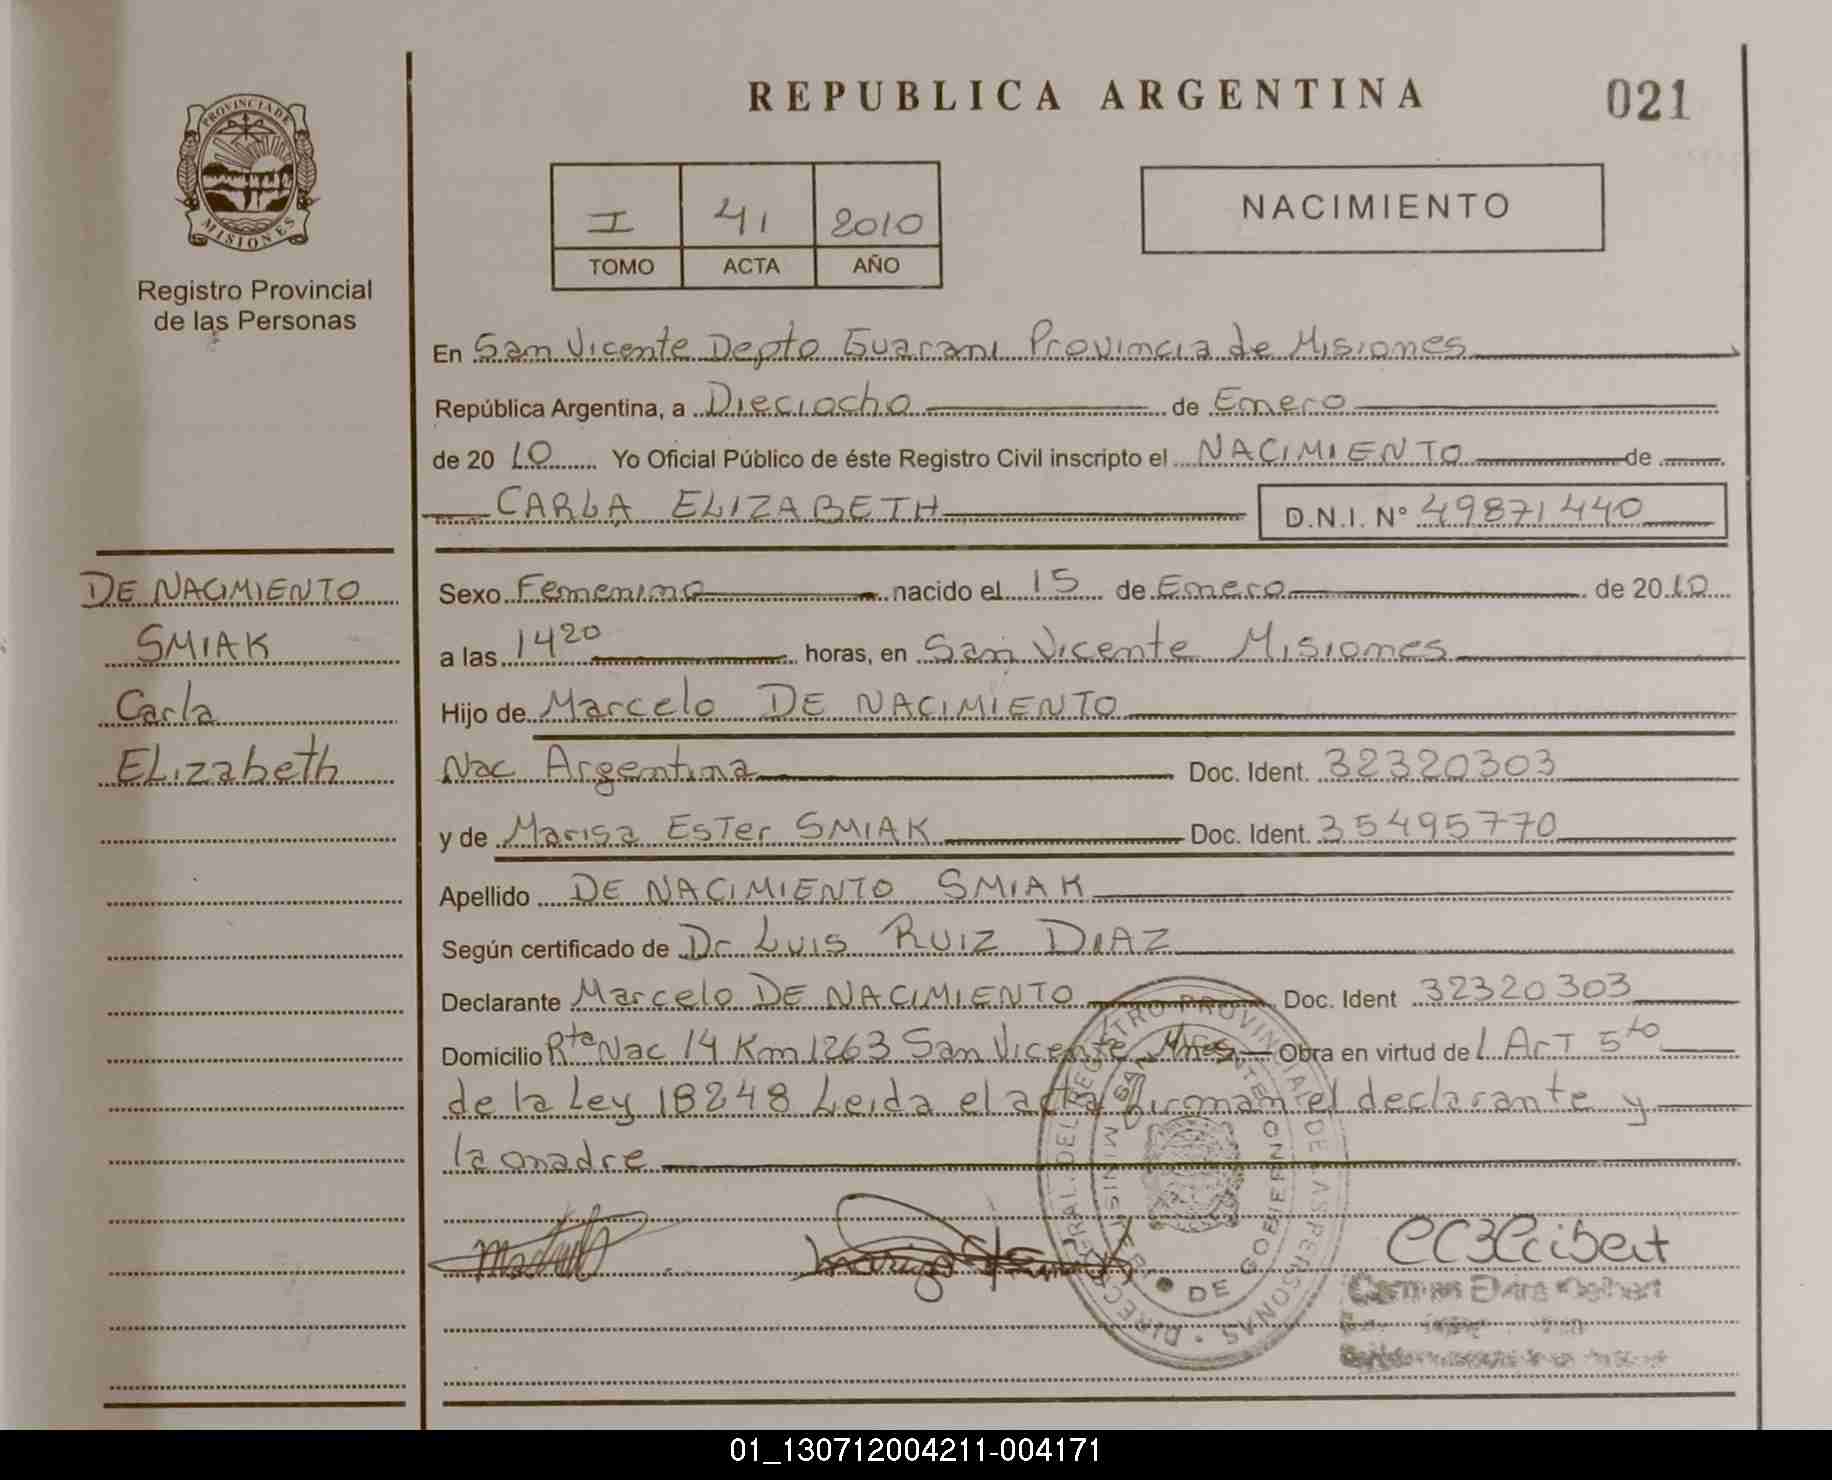 REPUBLICA ARGENTINA
021
PROVINCIA DE
MISIONES
Registro Provincial
de las Personas
I 41 2010
TOMO ACTA AÑO
NACIMIENTO
En San Vicente Depto Guarani Provincia de Misiones
República Argentina, a Dieciocho de Enero
de 20 10 Yo Oficial Público de éste Registro Civil inscripto el NACIMIENTO de
CARLA ELIZABETH D.N.I. N° 49871440
DE NACIMIENTO
SMIAK
Carla
ELizabeth
Sexo Femenino nacido el 15 de Enero de 20 10
a las 14 20 horas, en San Vicente Misiones
Hijo de Marcelo DE NACIMIENTO
Nac Argentina Doc. Ident. 32320303
y de Marisa Ester SMIAK Doc. Ident. 35495770
Apellido DE NACIMIENTO SMIAK
Según certificado de Dr Luis RUIZ DIAZ
Declarante Marcelo DE NACIMIENTO Doc. Ident 32320303
Domicilio Rta Nac 14 Km 1263 San Vicente Mnes Obra en virtud del Art 5to
de la Ley 18248 Leida el acta firman el declarante y
la madre
DIRECCION GENERAL DEL REGISTRO PROVINCIAL DE LAS PERSONAS
DE GOBIERNO
01_130712004211-004171